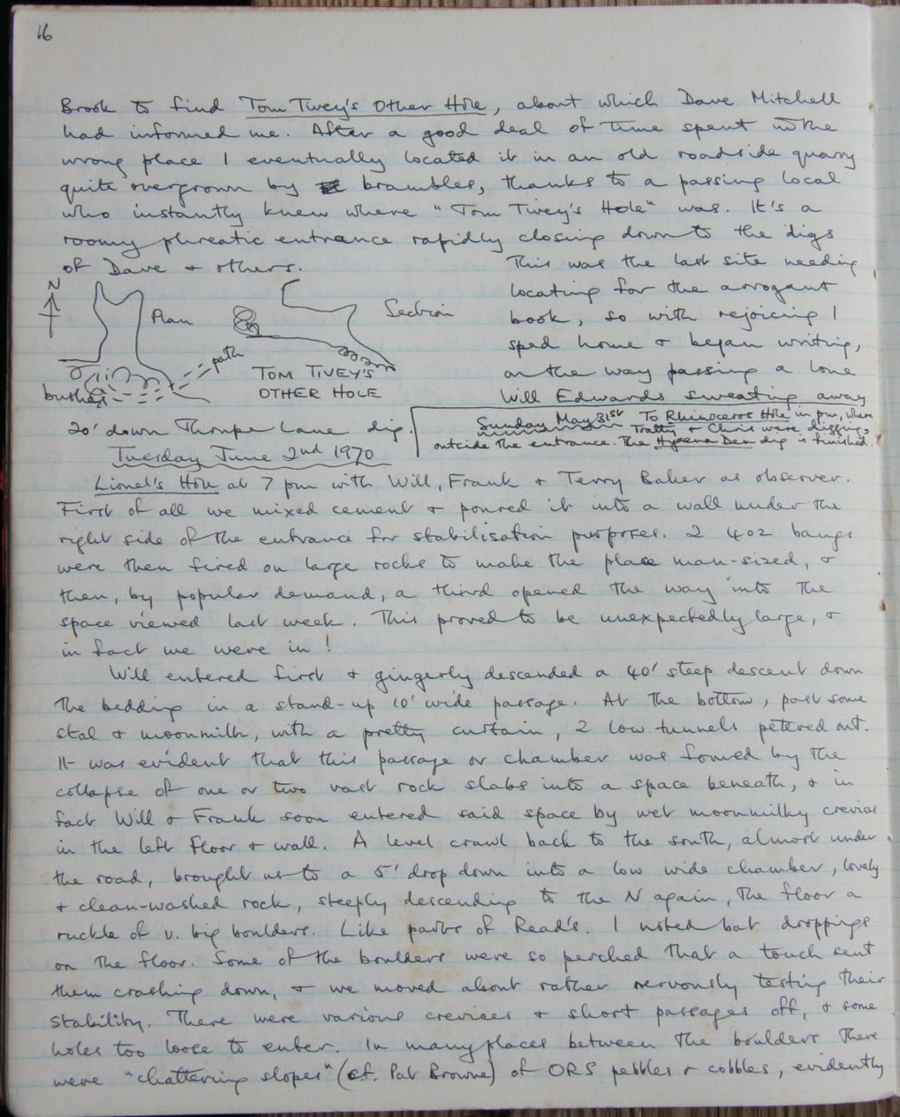 16
Brook to find Tom Tivey's Other Hole, about which Dave Mitchell
had informed me. After a good deal of time spent in the
wrong place I eventually located it in an old roadside quarry
quite overgrown by brambles, thanks to a passing local
who instantly knew where "Tom Tivey's Hole" was. It's a
roomy phreatic entrance rapidly closing down to the digs
of Dave & others.
This was the last site needing
locating for the arrogant
book, so with rejoicing I
sped home & began writing,
on the way passing a lone
Will Edwards sweating away
N
Plan
path
bushes
Section
TOM TIVEY'S
OTHER HOLE
20' down Thrupe Lane dig.
Sunday May 31st To Rhinoceros Hole in pm, where
Tratty & Chris were digging
outside the entrance. The Hyaena Den dig is finished.
Tuesday June 2nd 1970
Lionel's Hole at 7 pm with Will, Frank & Terry Baker as observer.
First of all we mixed cement & poured it into a wall under the
right side of the entrance for stabilisation purposes. 2 4oz bangs
were then fired on large rocks to make the place man-sized, &
then, by popular demand, a third opened the way into the
space viewed last week. This proved to be unexpectedly large, &
in fact we were in!
Will entered first & gingerly descended a 40' steep descent down
the bedding in a stand-up 10' wide passage. At the bottom, past some
stal & moonmilk, with a pretty curtain, 2 low tunnels petered out.
It was evident that this passage or chamber was formed by the
collapse of one or two vast rock slabs into a space beneath, & in
fact Will & Frank soon entered said space by wet moonmilky crevice
in the left floor & wall. A level crawl back to the south, almost under
the road, brought us to a 5' drop down into a low wide chamber, lovely
& clean-washed rock, steeply descending to the N again, the floor a
ruckle of v. big boulders. Like parts of Read's. I noted bat droppings
on the floor. Some of the boulders were so perched that a touch sent
them crashing down, & we moved about rather nervously testing their
stability. There were various crevices & short passages off, & some
holes too loose to enter. In many places between the boulders there
were "chattering slopes" (cf. Pat Browne) of ORS pebbles & cobbles, evidently